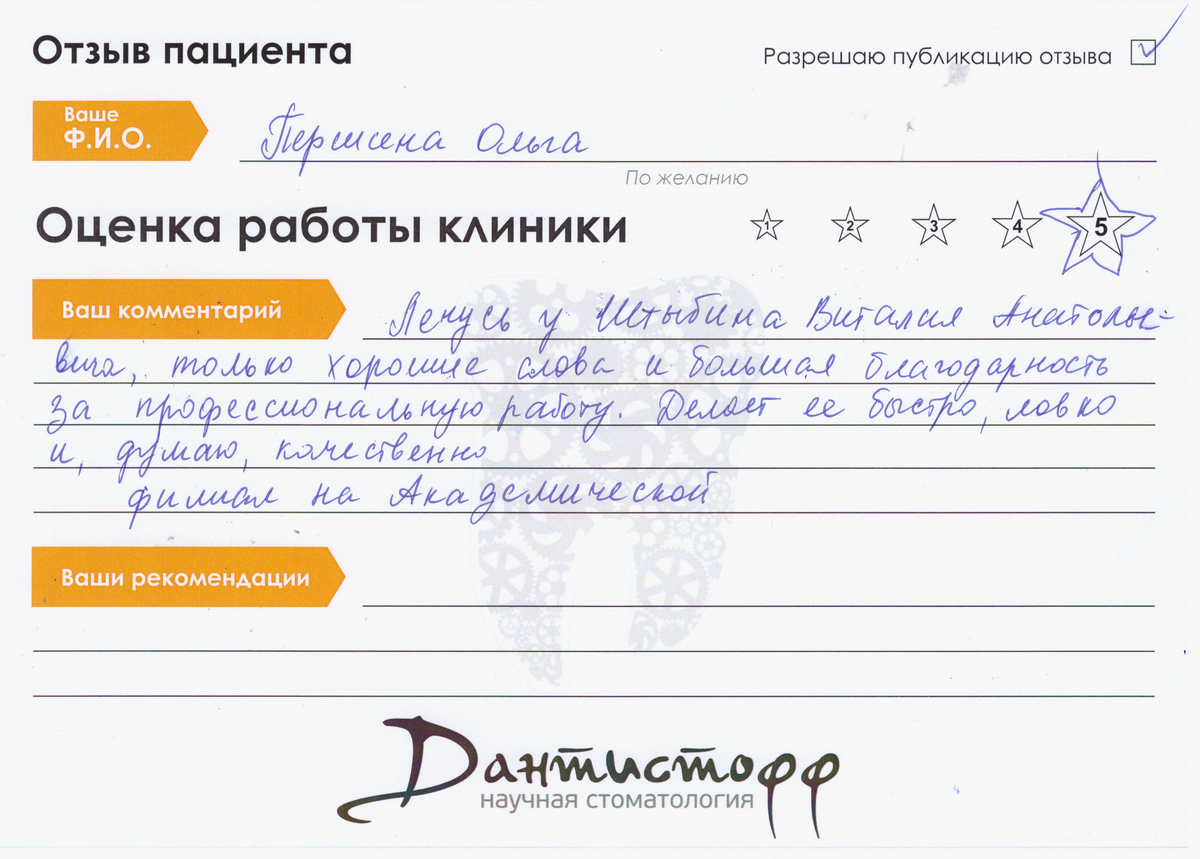 Отзыв пациента
Разрешаю публикацию отзыва
Ваше
Ф.И.О.
Першина Ольга
По желанию
Оценка работы клиники
1 2 3 4 5
Ваш комментарий
Лечусь у Штыбина Виталия Анатолье-
вича, только хорошие слова и большая благодарность
за профессиональную работу. Делает ее быстро, ловко
и, думаю, качественно
филиал на Академической
Ваши рекомендации
Дантистофф
научная стоматология